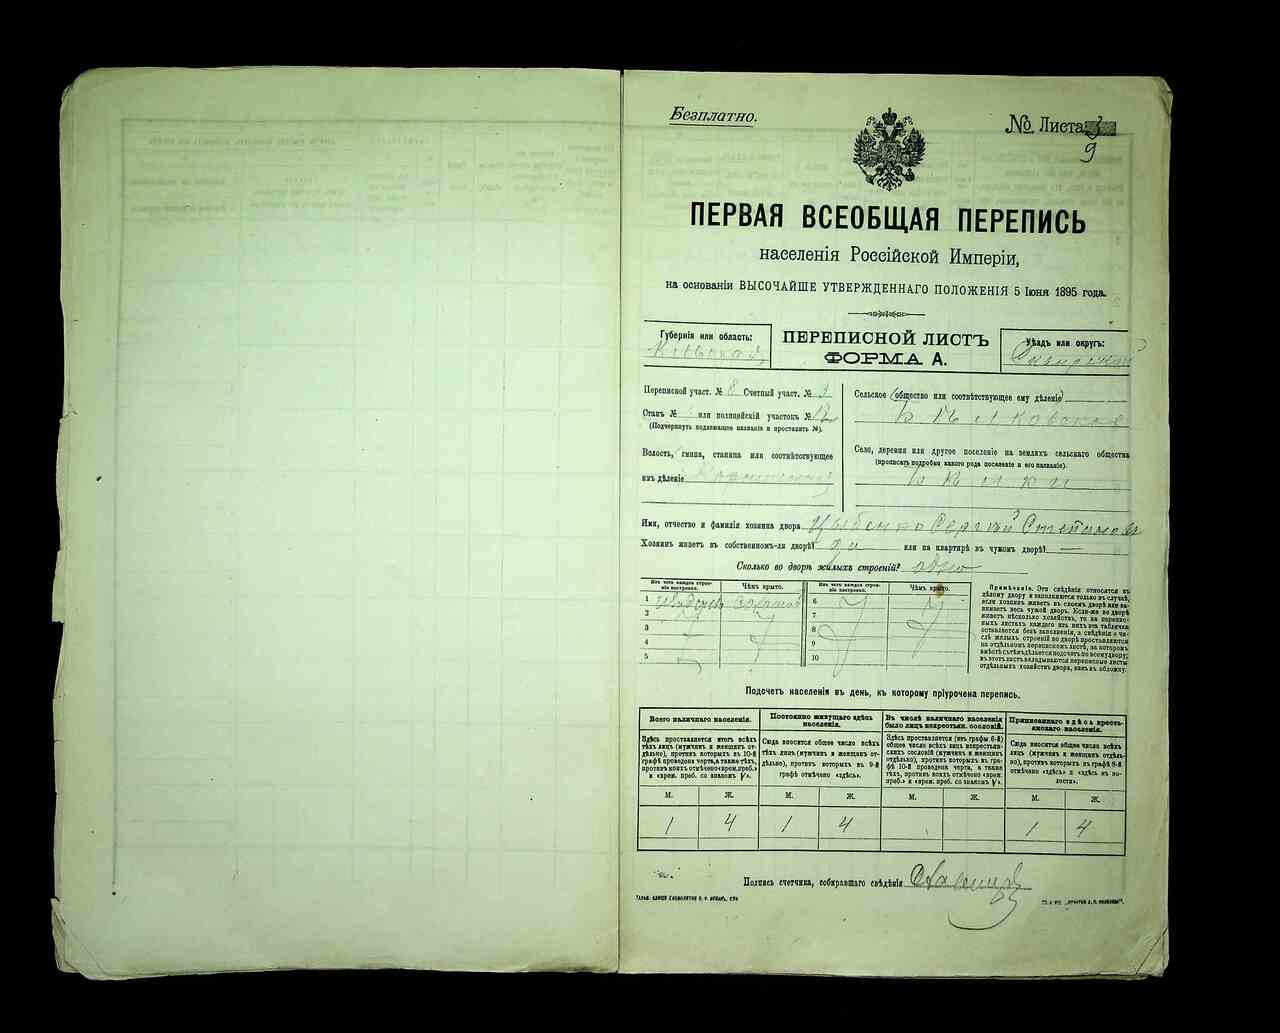 Безплатно.
№ Листа
9
ПЕРВАЯ ВСЕОБЩАЯ ПЕРЕПИСЬ
населенія Россійской Имперіи,
на основаніи ВЫСОЧАЙШЕ УТВЕРЖДЕННАГО ПОЛОЖЕНІЯ 5 Іюня 1895 года.
Губернія или область:
Кіевская
ПЕРЕПИСНОЙ ЛИСТЪ
ФОРМА А.
Уѣздъ или округъ:
Переписной участ. № 8 Счетный участ. № 3
Станъ № или полицейскій участокъ № 12
(Подчеркнуть подлежащее названіе и проставить №).
Волость, гмина, станица или соотвѣтствующее
имъ дѣленіе
Сельское (общество или соотвѣтствующее ему дѣленіе)
Село, деревня или другое поселеніе на земляхъ сельскаго общества
(прописать подробно какого рода поселеніе и его названіе).
Бѣлки
Имя, отчество и фамилія хозяина двора Цыбенко Сергій Степановъ
Хозяинъ живетъ въ собственномъ-ли дворѣ? да или на квартирѣ въ чужомъ дворѣ? —
Сколько во дворѣ жилыхъ строеній? одно
Изъ чего каждое строеніе построено.
Чѣмъ крыто.
Изъ чего каждое строеніе построено.
Чѣмъ крыто.
1 6
2 7
3 8
4 9
5 10
Примѣчаніе. Эти свѣдѣнія относятся къ
цѣлому двору и заполняются только въ случаѣ,
если хозяинъ живетъ въ своемъ дворѣ или занимаетъ
весь чужой дворъ. Если-же во дворѣ
живетъ нѣсколько хозяйствъ, то на переписныхъ
листахъ каждаго изъ нихъ эта табличка
оставляется безъ заполненія, а свѣдѣнія о числѣ
жилыхъ строеній во дворѣ проставляются
на отдѣльномъ переписномъ листѣ, на которомъ
вмѣстѣ съ тѣмъ дѣлается подсчетъ по всему двору;
въ этотъ листъ вкладываются переписные листы
отдѣльныхъ хозяйствъ двора, какъ въ обложку.
Подсчетъ населенія въ день, къ которому пріурочена перепись.
Всего наличнаго населенія.
Постоянно живущаго здѣсь населенія.
Въ числѣ наличнаго населенія было лицъ некрестьян. сословій.
Приписаннаго здѣсь крестьянскаго населенія.
Здѣсь проставляется итогъ всѣхъ
тѣхъ лицъ (мужчинъ и женщинъ отдѣльно),
противъ которыхъ въ 10-й
графѣ проведена черта, а также тѣхъ,
противъ коихъ отмѣчено «врем. преб.»
и «врем. преб. со знакомъ V».
Сюда вносится общее число всѣхъ
тѣхъ лицъ (мужчинъ и женщинъ отдѣльно),
противъ которыхъ въ 9-й
графѣ отмѣчено «здѣсь».
Здѣсь проставляется (изъ графы 6-й)
общее число всѣхъ лицъ некрестьянскихъ
сословій (мужчинъ и женщинъ
отдѣльно), противъ которыхъ въ графѣ
10-й проведена черта, а также
тѣхъ, противъ коихъ отмѣчено «врем.
преб.» и «врем. преб. со знакомъ V».
Сюда вносится общее число всѣхъ
лицъ (мужчинъ и женщинъ отдѣльно),
противъ которыхъ въ графѣ 8-й
отмѣчено «здѣсь» и «здѣсь въ волости».
М. Ж. М. Ж. М. Ж. М. Ж.
1 4 1 4 1 4
Подпись счетчика, собиравшаго свѣдѣнія